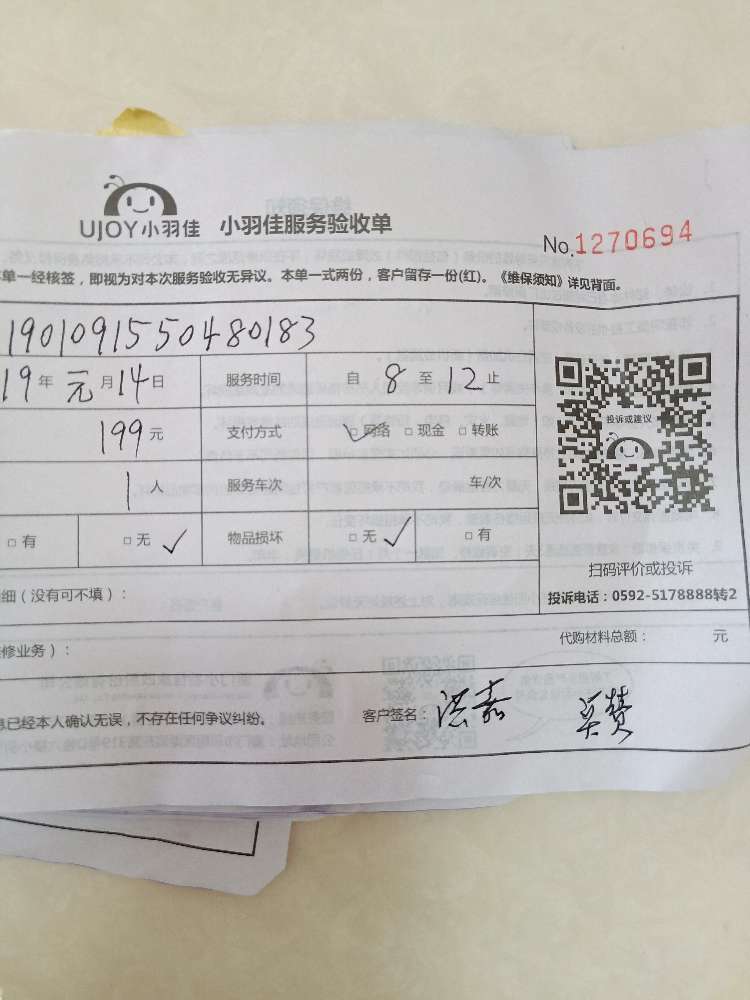 UJOY小羽佳 小羽佳服务验收单
No.1270694
单一经核签，即视为对本次服务验收无异议。本单一式两份，客户留存一份(红)。《维保须知》详见背面。
1901091550480183
19年元月14日 服务时间 自8至12止
199元 支付方式 ☑网络 □现金 □转账
投诉或建议
1人 服务车次 车/次
□有 □无 ✓ 物品损坏 □无 ✓ □有
扫码评价或投诉
细（没有可不填）：
投诉电话：0592-5178888转2
修业务）：
代购材料总额： 元
息已经本人确认无误，不存在任何争议纠纷。 客户签名：洪嘉